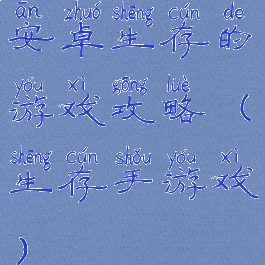 ān zhuó shēng cún de
安卓生存的
yóu xì gōng lüè
游戏攻略(
shēng cún shǒu yóu xì
生存手游戏
)